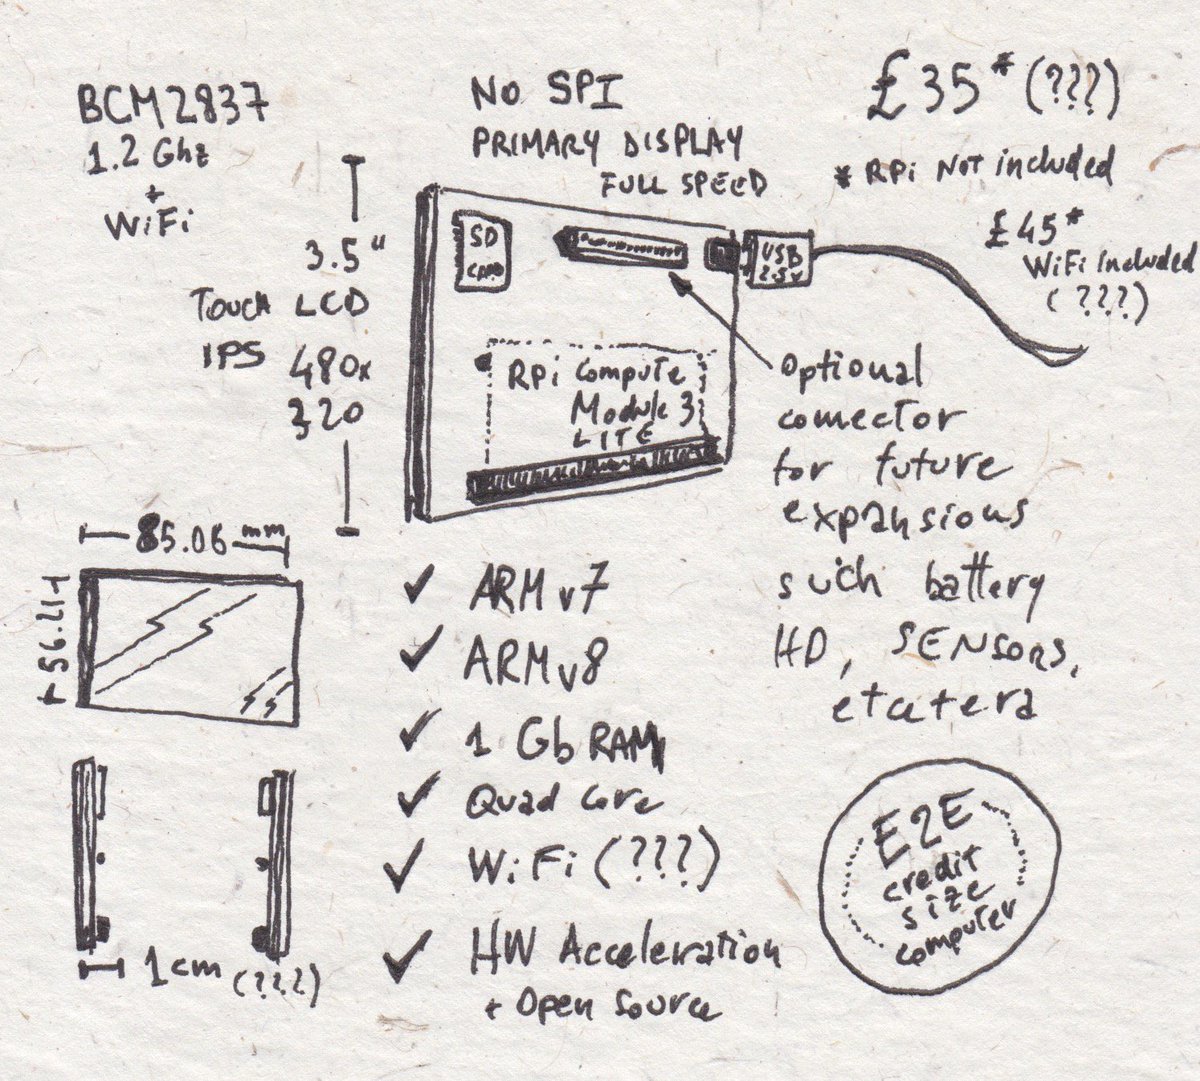 BCM2837
1.2 Ghz
+
WiFi
NO SPI
PRIMARY DISPLAY
FULL SPEED
£35* (???)
* RPi Not included
£45*
WiFi included
(???)
3.5"
Touch LCD
IPS 480x
320
SD
CARD
USB
RPi Compute
Module 3
LITE
Optional
connector
for future
expansions
such battery
HD, SENSors,
etcetera
85.06 mm
56.21
1 cm (???)
✓ ARM v7
✓ ARM v8
✓ 1 Gb RAM
✓ Quad Core
✓ WiFi (???)
✓ HW Acceleration
+ Open Source
E2E
credit
size
computer